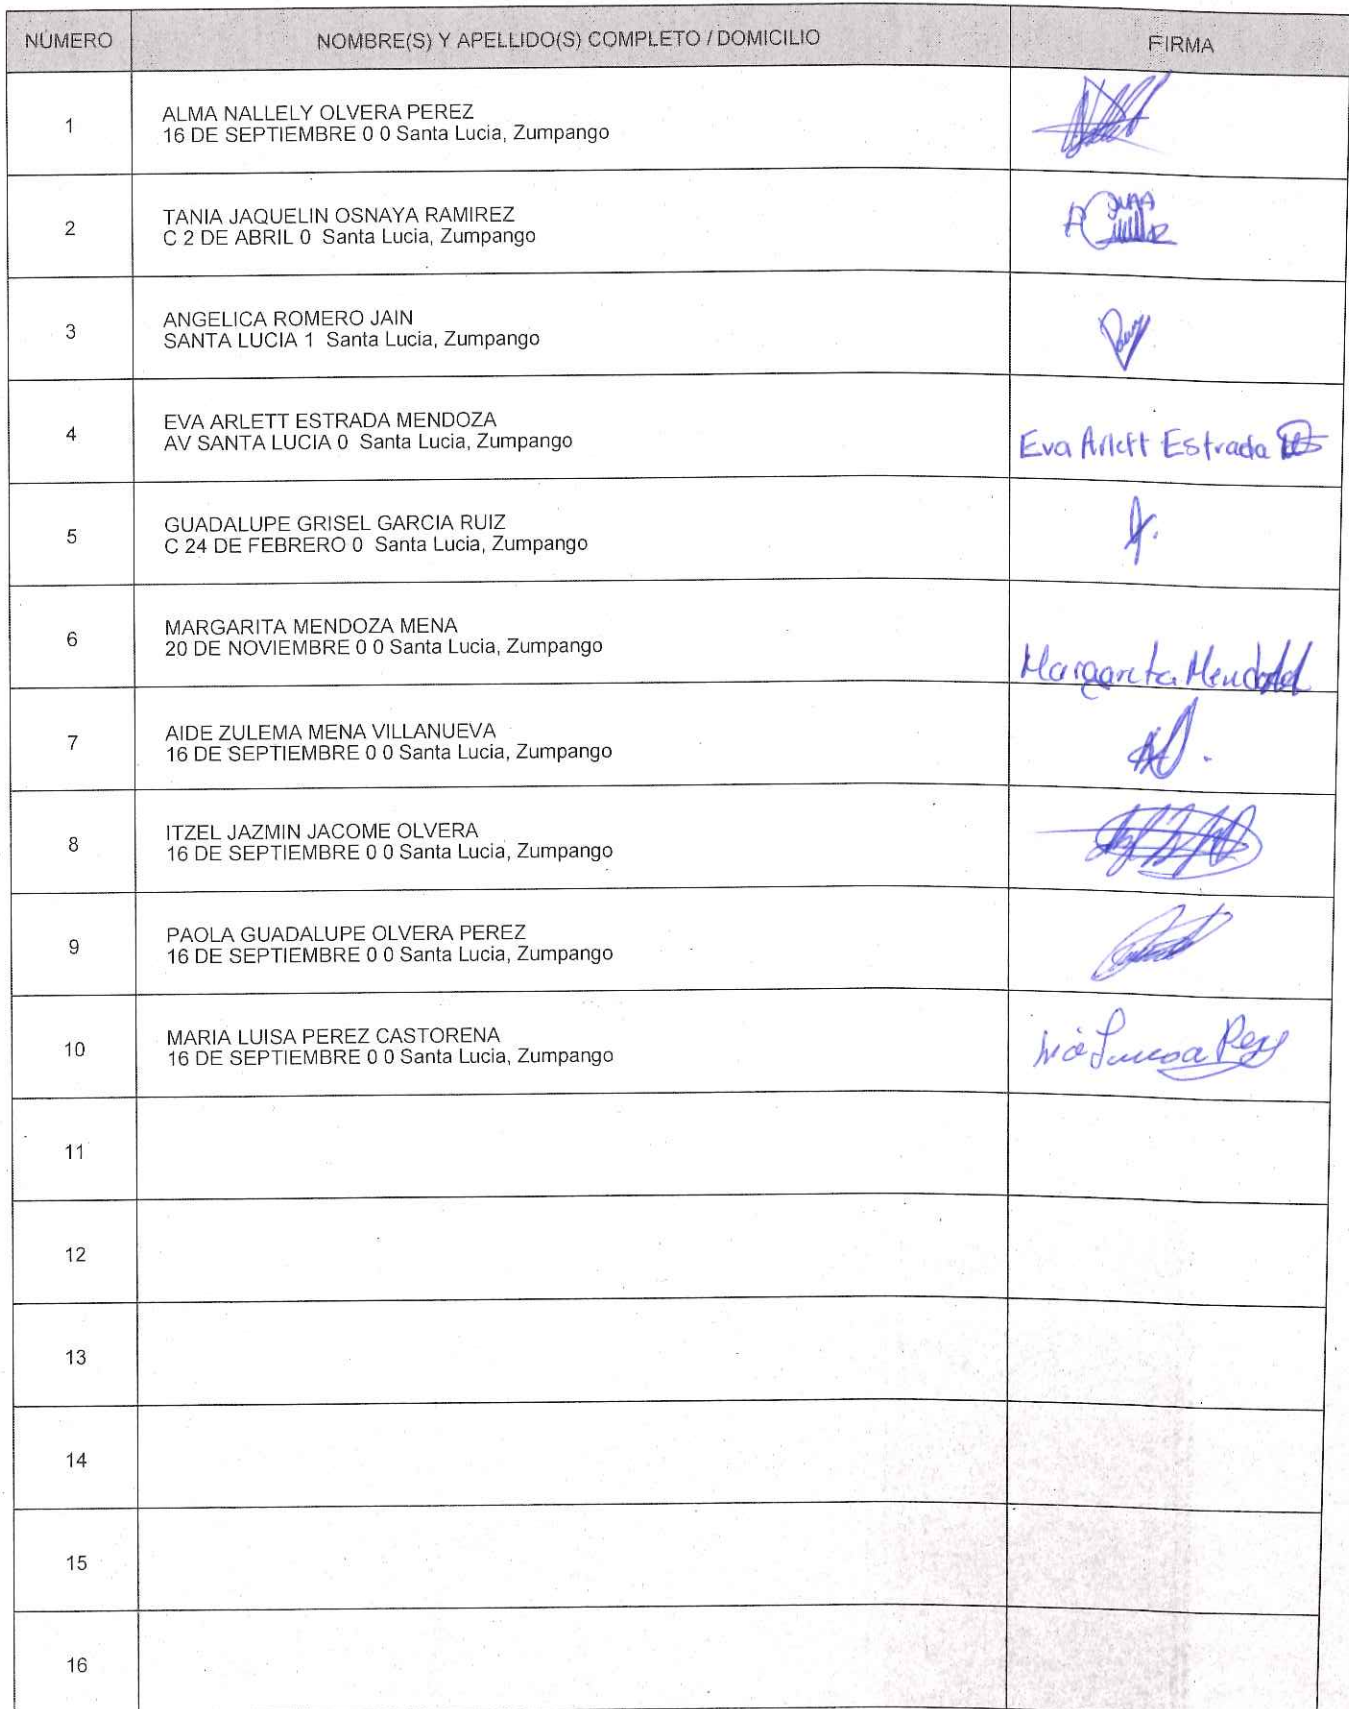 NÚMERO NOMBRE(S) Y APELLIDO(S) COMPLETO / DOMICILIO FIRMA
1 ALMA NALLELY OLVERA PEREZ
16 DE SEPTIEMBRE 0 0 Santa Lucia, Zumpango
2 TANIA JAQUELIN OSNAYA RAMIREZ
C 2 DE ABRIL 0 Santa Lucia, Zumpango
3 ANGELICA ROMERO JAIN
SANTA LUCIA 1 Santa Lucia, Zumpango
4 EVA ARLETT ESTRADA MENDOZA
AV SANTA LUCIA 0 Santa Lucia, Zumpango
Eva Arlett Estrada
5 GUADALUPE GRISEL GARCIA RUIZ
C 24 DE FEBRERO 0 Santa Lucia, Zumpango
6 MARGARITA MENDOZA MENA
20 DE NOVIEMBRE 0 0 Santa Lucia, Zumpango
Margarita
7 AIDE ZULEMA MENA VILLANUEVA
16 DE SEPTIEMBRE 0 0 Santa Lucia, Zumpango
8 ITZEL JAZMIN JACOME OLVERA
16 DE SEPTIEMBRE 0 0 Santa Lucia, Zumpango
9 PAOLA GUADALUPE OLVERA PEREZ
16 DE SEPTIEMBRE 0 0 Santa Lucia, Zumpango
10 MARIA LUISA PEREZ CASTORENA
16 DE SEPTIEMBRE 0 0 Santa Lucia, Zumpango
11
12
13
14
15
16